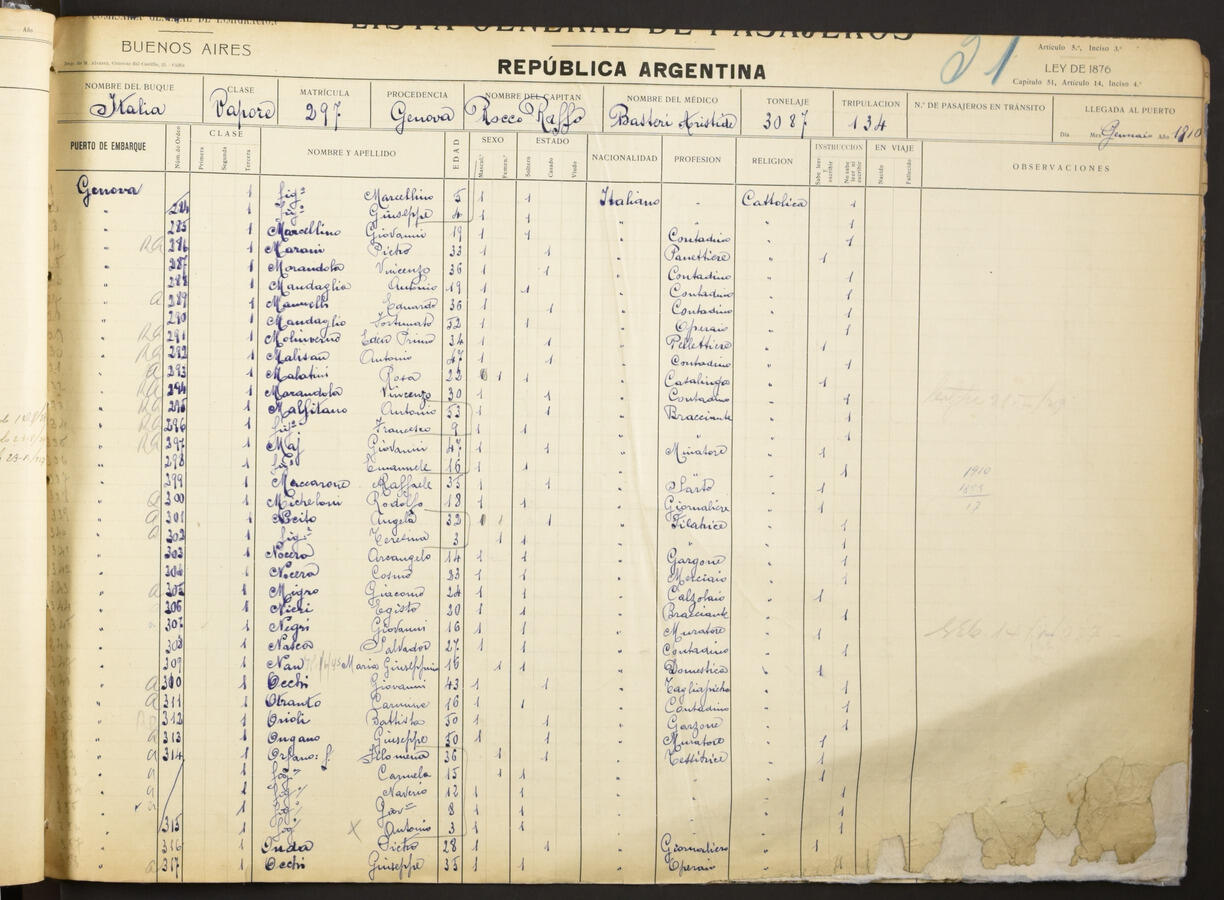 LISTA GENERAL DE PASAJEROS
BUENOS AIRES
REPÚBLICA ARGENTINA
31
Artículo 5.º, Inciso 3.º
LEY DE 1876
Capítulo 51, Artículo 14, Inciso 4.º
NOMBRE DEL BUQUE CLASE MATRÍCULA PROCEDENCIA NOMBRE DEL CAPITAN NOMBRE DEL MÉDICO TONELAJE TRIPULACION N.º DE PASAJEROS EN TRÁNSITO LLEGADA AL PUERTO
Italia Vapore 297 Genova Rocco Raffo Basteri Aristide 3087 134 Día Mes Gennaio Año 1910
PUERTO DE EMBARQUE Núm. de Orden CLASE Primera Segunda Tercera NOMBRE Y APELLIDO EDAD SEXO Mascul.º Femen.º ESTADO Soltero Casado Viudo NACIONALIDAD PROFESION RELIGION INSTRUCCION Sabe leer y escribir No sabe leer ni escribir EN VIAJE Nacido Fallecido OBSERVACIONES
Genova 1 fig.º Marcellino 5 1 1 Italiano - Cattolica 1
" 284 1 fig.º Giuseppe 4 1 1 " " " 1
" 285 1 Marcellino Giovanni 19 1 1 " Contadino " 1
" 286 1 Marani Pietro 33 1 1 " Panettiere " 1
" 287 1 Morandola Vincenzo 36 1 1 " Contadino " 1
" 288 1 Mandaglio Antonio 19 1 1 " Contadino " 1
" 289 1 Mannelli Eduardo 36 1 1 " Contadino " 1
" 290 1 Mandaglio Fortunato 52 1 1 " Operaio " 1
" 291 1 Molinverno Eden Primo 34 1 1 " Pellettiere " 1
" 292 1 Malisan Antonio 47 1 1 " Contadino " 1
" 293 1 Malatini Rosa 22 1 1 " Casalinga " 1
" 294 1 Marandola Vincenzo 30 1 1 " Contadino " 1
" 295 1 Malfitano Antonio 53 1 1 " Bracciante " 1
" 296 1 fig.º Francesco 9 1 1 " " " 1
" 297 1 Maj Giovanni 47 1 1 " Minatore " 1
" 298 1 fig.º Emanuele 16 1 1 " " " 1
" 299 1 Maccarone Raffaele 35 1 1 " Sarto " 1
" 300 1 Micheloni Rodolfo 18 1 1 " Giornaliere " 1
" 301 1 Angela 32 1 1 " Filatrice " 1
" 302 1 fig.ª Teresina 3 1 1 " " " 1
" 303 1 Nocera Arcangelo 14 1 1 " Garzone " 1
" 304 1 Nocera Cosmo 33 1 1 " Merciaio " 1
" 305 1 Migro Giacomo 24 1 1 " Calzolaio " 1
" 306 1 Nieri Egisto 20 1 1 " Bracciante " 1
" 307 1 Negri Giovanni 16 1 1 " Muratore " 1
" 308 1 Nasca Salvador 27 1 1 " Contadino " 1
" 309 1 Nan Maria Giuseppina 16 1 1 " Domestica " 1
" 310 1 Occhi Giovanni 43 1 1 " Tagliapietre " 1
" 311 1 Otranto Carmine 16 1 1 " Contadino " 1
" 312 1 Orioli Battista 50 1 1 " Garzone " 1
" 313 1 Ongano Giuseppe 50 1 1 " Muratore " 1
" 314 1 Orfano: f. Filomena 36 1 1 " Tessitrice " 1
" 1 fig.ª Carmela 15 1 1 " " " 1
" fig.º Naverio 12 1 1 " " " 1
" 1 fig.º Giov.º 8 1 1 " " " 1
" 315 1 fig.º Antonio 3 1 1 " " " 1
" 316 1 Onda Pietro 28 1 1 " Giornaliero " 1
" 317 1 Occhi Giuseppe 35 1 1 " Operaio "
1910
1893
17